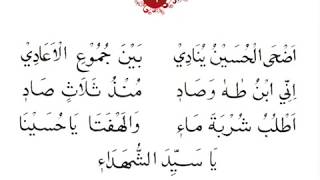 اَضْحَى الْحُسَيْنُ يُنَادِيْ بَيْنَ جُمُوْعِ الْاَعَادِيْ
اِنِّي ابْنُ طٰهٰ وَصَادِ مُنْذُ ثَلَاثٍ صَادِ
اَطْلُبُ شُرْبَةَ مَاءِ وَالَهْفَتَا يَا حُسَيْنَا
يَا سَيِّدَ الشُّهَدَاءِ